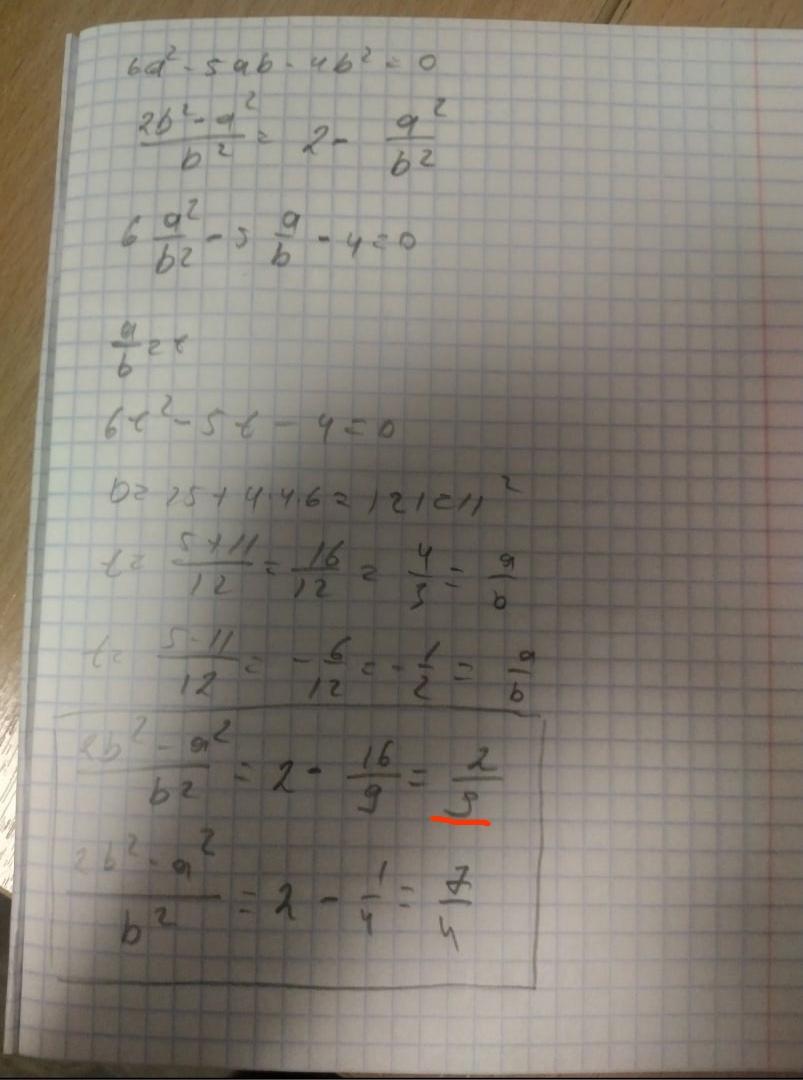 6a² - 5ab - 4b² = 0
(2b² - a²)/b² = 2 - a²/b²
6 a²/b² - 5 a/b - 4 = 0
a/b = t
6t² - 5t - 4 = 0
D = 25 + 4·4·6 = 121 = 11²
t = (5+11)/12 = 16/12 = 4/3 = a/b
t = (5-11)/12 = -6/12 = -1/2 = a/b
(2b² - a²)/b² = 2 - 16/9 = 2/9
(2b² - a²)/b² = 2 - 1/4 = 7/4